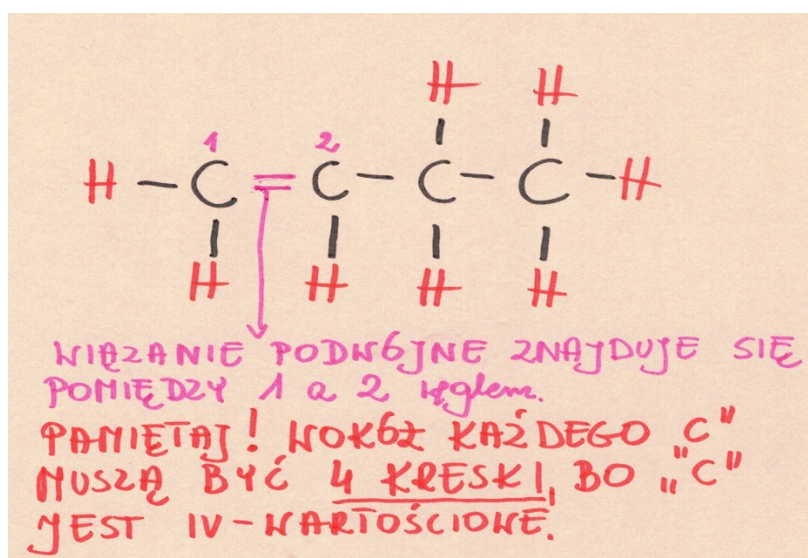 H H
1 2
H - C = C - C - C - H
H H H H
WIĄZANIE PODWÓJNE ZNAJDUJE SIĘ
POMIĘDZY 1 a 2 węglem.
PAMIĘTAJ! WOKÓŁ KAŻDEGO „C”
MUSZĄ BYĆ 4 KRESKI, BO „C”
JEST IV-WARTOŚCIOWE.